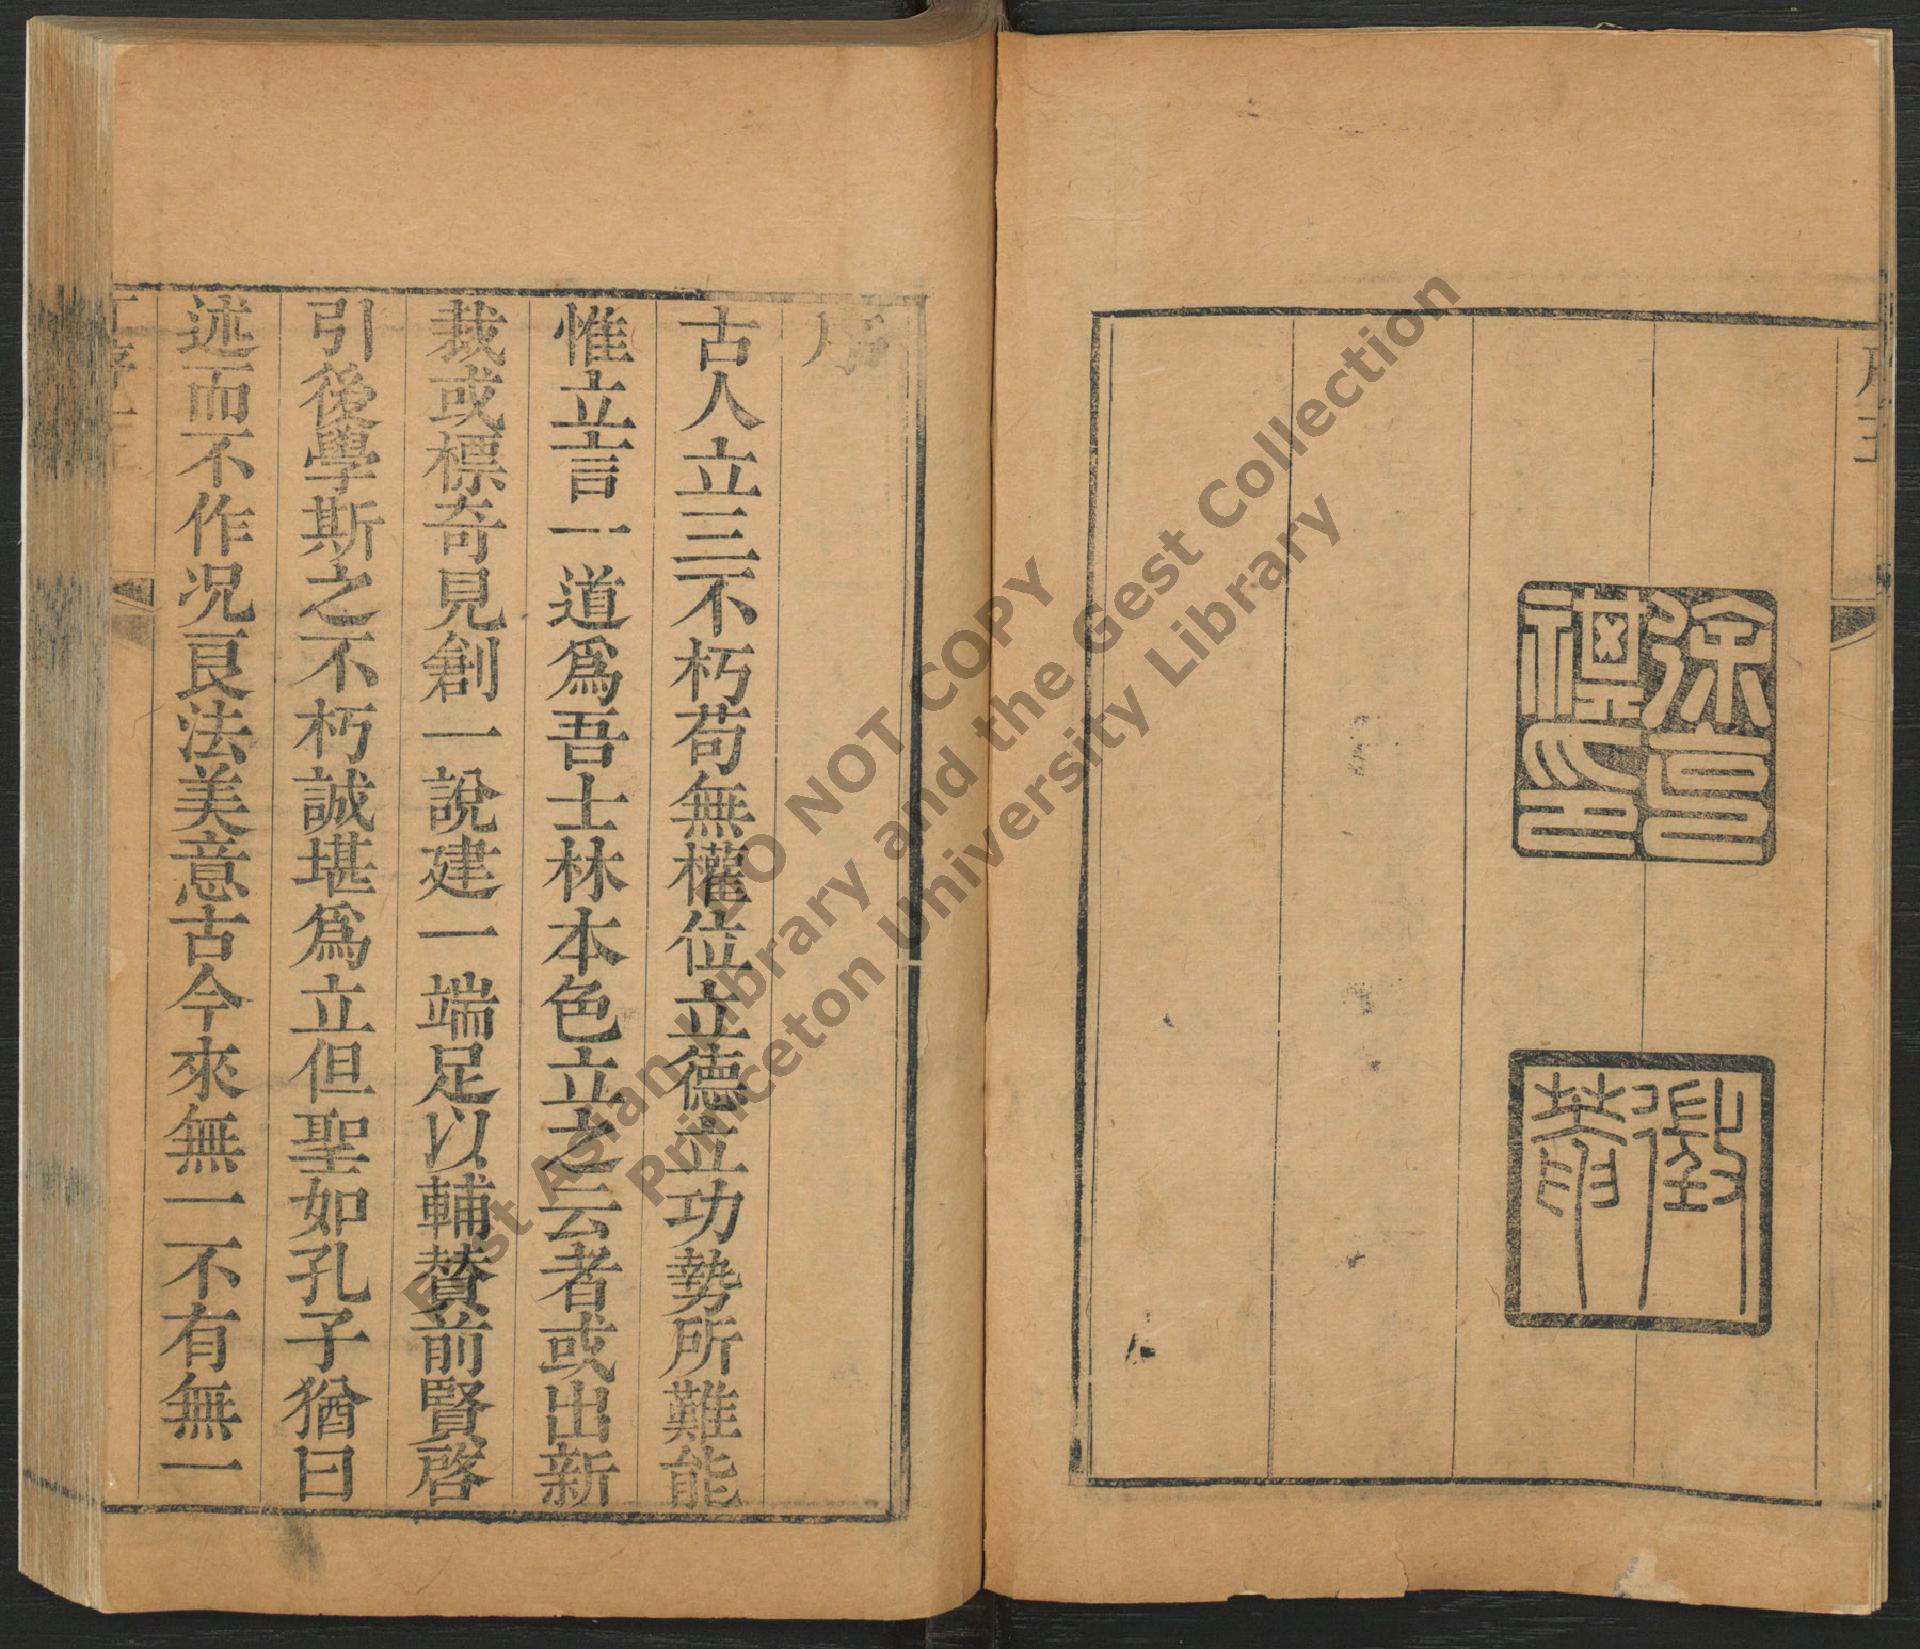 序
古人立三不朽苟無權位立德立功勢所難能
惟立言一道爲吾士林本色立之云者或出新
裁或標奇見創一說建一端足以輔賛前賢啓
引後學斯之不朽誠堪爲立但聖如孔子猶曰
述而不作况良法美意古今來無一不有無一
DO NOT COPY
East Asian Library and the Gest Collection
Princeton University Library